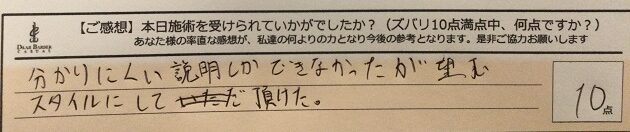 【ご感想】本日施術を受けられていかがでしたか?(ズバリ10点満点中、何点ですか?)
DEAR BARBER
CASUAL
あなた様の率直な感想が、私達の何よりの力となり今後の参考となります。是非ご協力お願いします
分かりにくい説明しかできなかったが望む
スタイルにして頂けた。
10点